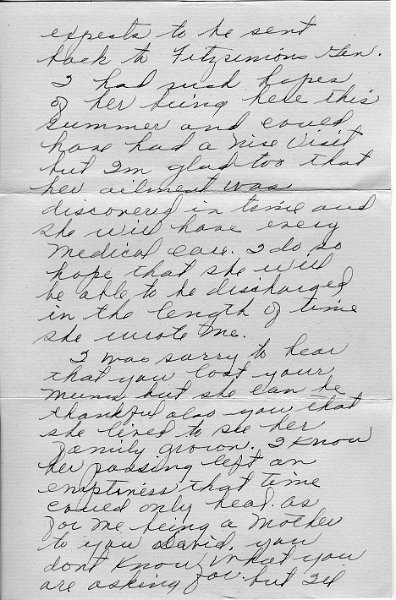 expects to be sent
back to Fitzsimions Gen.
I had such hopes
of her being here this
Summer and could
have had a nice Visit
but I'm glad too that
her ailment was
discovered in time and
she will have every
Medical care. I do so
hope that she will
be able to be discharged
in the length of time
she wrote me.
I was sorry to hear
that you lost your
Mums but she can be
thankful also you that
she lived to see her
family grown. I know
her passing left an
emptiness that time
could only heal. as
for me being a Mother
to you David, you
dont know what you
are asking for but I'll